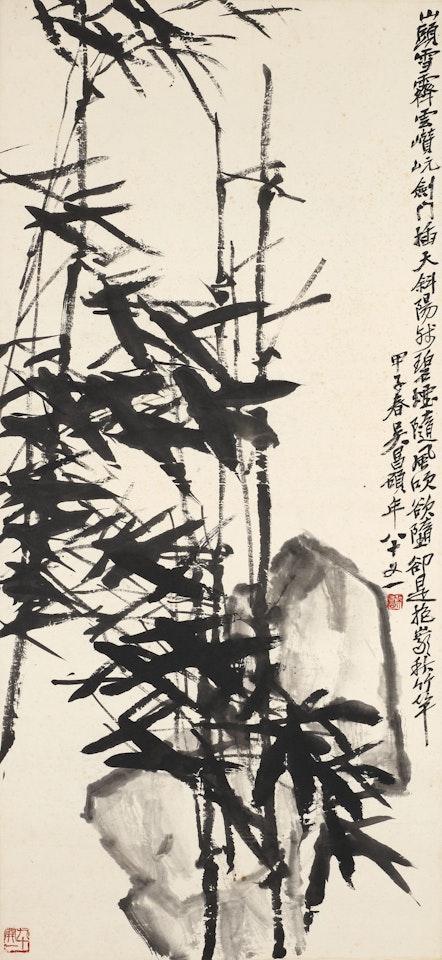 山頭雪霽雲巑岏劍門插天斜陽碧隨風吹欲墮卻是秋竹竿
甲子春吳昌碩年八十又一